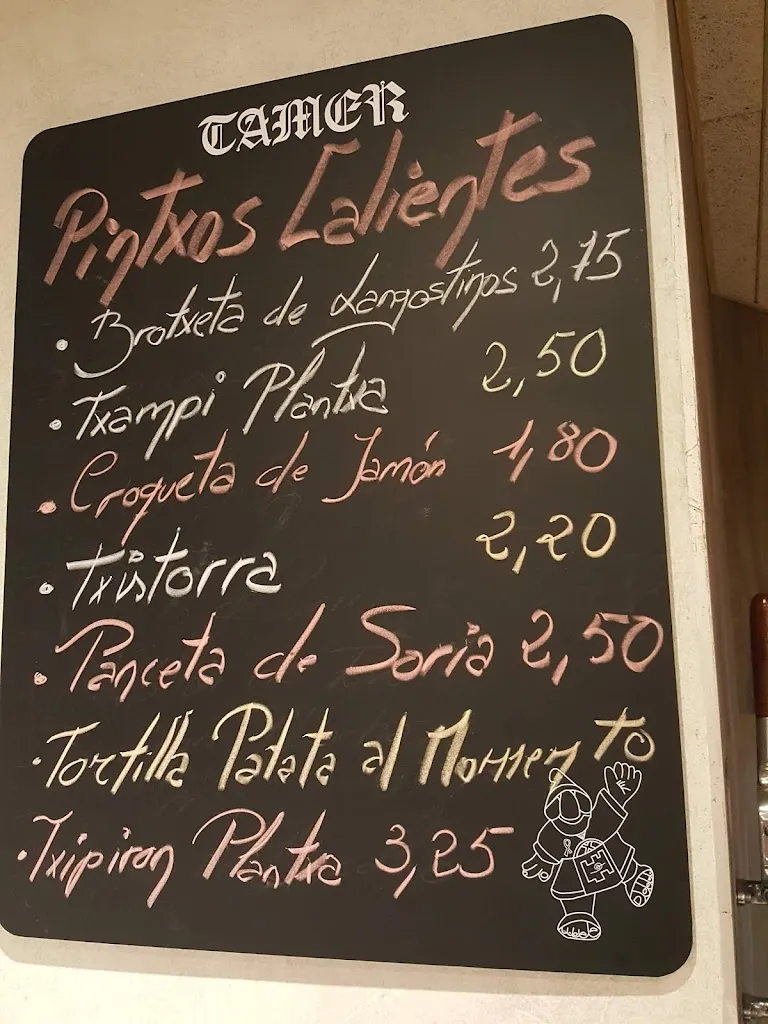 TAMER
Pintxos Calientes
· Brotxeta de Langostinos 2,75
· Txampi Plantxa 2,50
· Croqueta de Jamón 1,80
· Txistorra 2,20
· Panceta de Soria 2,50
· Tortilla Patata al Momento
· Txipiron Plantxa 3,25